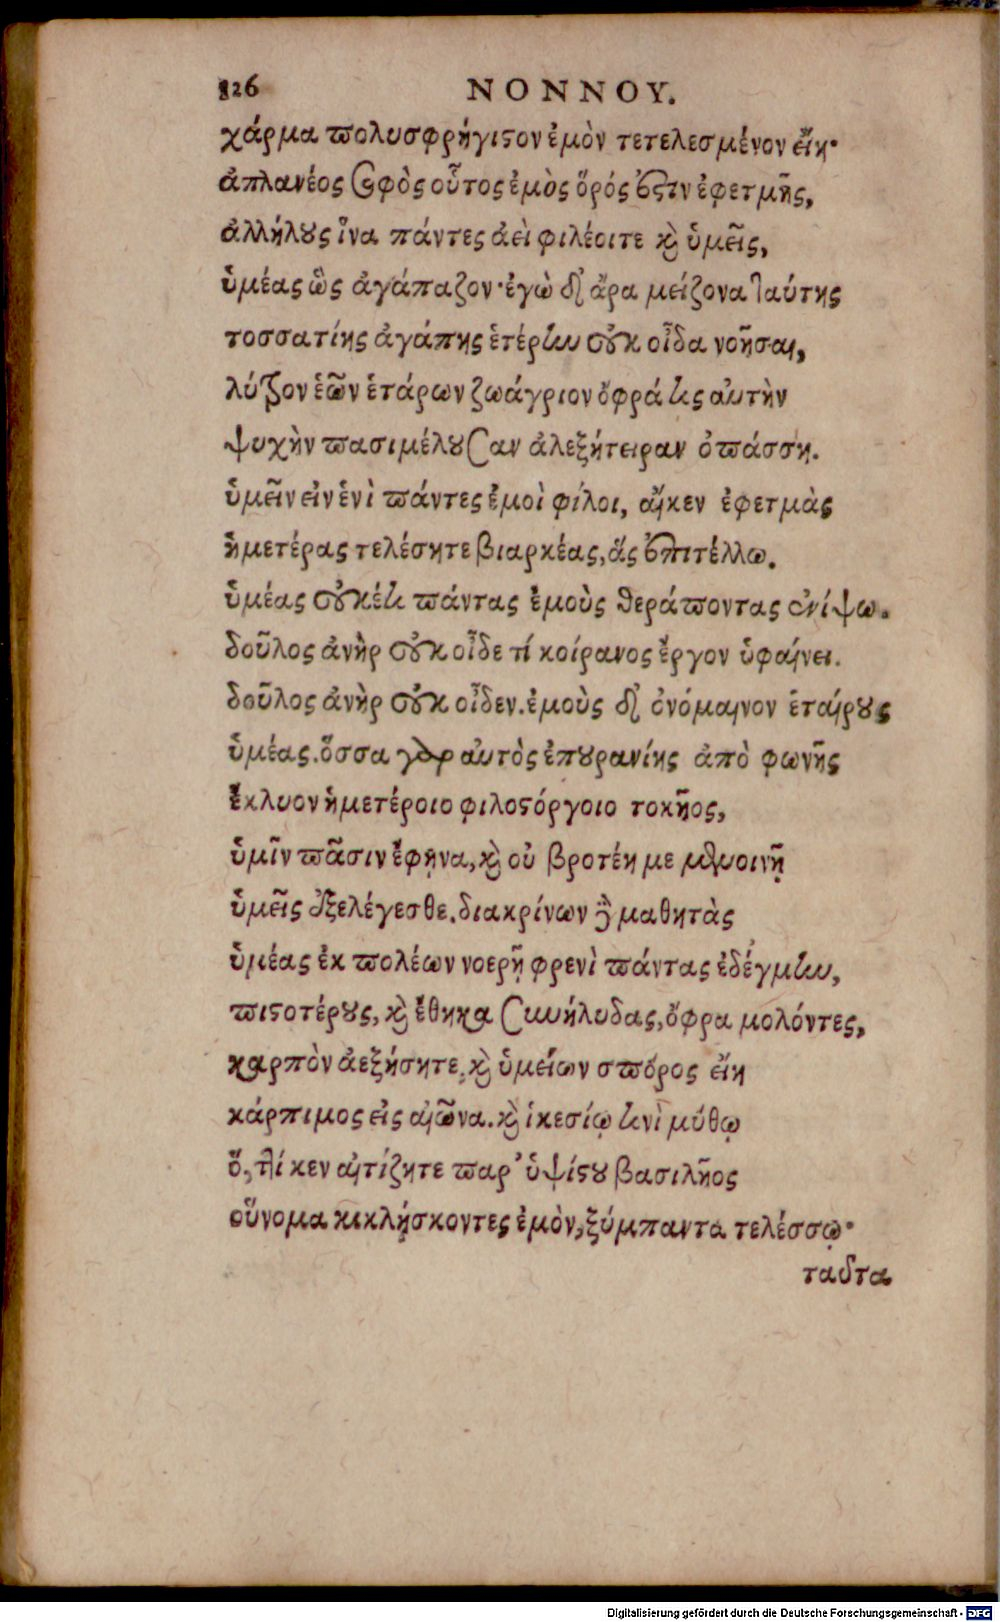 126 ΝΟΝΝΟΥ.
χάρμα πολυσφρήγιστον ἐμὸν τετελεσμένον εἴη·
ἀπλανέος σοφὸς οὗτος ἐμὸς ὅρός ἐστιν ἐφετμῆς,
ἀλλήλους ἵνα πάντες ἀεὶ φιλέοιτε καὶ ὑμεῖς,
ὑμέας ὡς ἀγάπαζον· ἐγὼ δ' ἄρα μείζονα ταύτης
τοσσατίης ἀγάπης ἑτέρην οὐκ οἶδα νοῆσαι,
λύτρον ἑῶν ἑτάρων ζωάγριον ὄφρά τις αὐτὴν
ψυχὴν πασιμέλουσαν ἀλεξήτειραν ὀπάσσῃ.
ὑμεῖν εἰν ἑνὶ πάντες ἐμοὶ φίλοι, αἴκεν ἐφετμὰς
ἡμετέρας τελέσητε βιαρκέας, ἅς ἐπιτέλλω.
ὑμέας οὐκέτι πάντας ἐμοὺς θεράποντας ἐνίψω.
δοῦλος ἀνὴρ οὐκ οἶδε τί κοίρανος ἔργον ὑφαίνει.
δοῦλος ἀνὴρ οὐκ οἶδεν. ἐμοὺς δ' ὀνόμαινον ἑταίρους
ὑμέας. ὅσσα γὰρ αὐτὸς ἐπουρανίης ἀπὸ φωνῆς
ἔκλυον ἡμετέροιο φιλοστόργοιο τοκῆος,
ὑμῖν πᾶσιν ἔφηνα, καὶ οὐ βροτέη με μενοινῇ
ὑμεῖς ἐξελέγεσθε. διακρίνων δὲ μαθητὰς
ὑμέας ἐκ πολέων νοερῇ φρενὶ πάντας ἐδέγμην,
πιστοτέρους, καὶ ἔθηκα συνήλυδας, ὄφρα μολόντες,
καρπὸν ἀεξήσητε, καὶ ὑμείων σπόρος εἴη
κάρπιμος εἰς αἰῶνα. καὶ ἱκεσίῳ τινὶ μύθῳ
ὅ, τί κεν αἰτίζητε παρ' ὑψίστου βασιλῆος
οὔνομα κικλήσκοντες ἐμὸν, ξύμπαντα τελέσσῳ·
ταῦτα
Digitalisierung gefördert durch die Deutsche Forschungsgemeinschaft - DFG